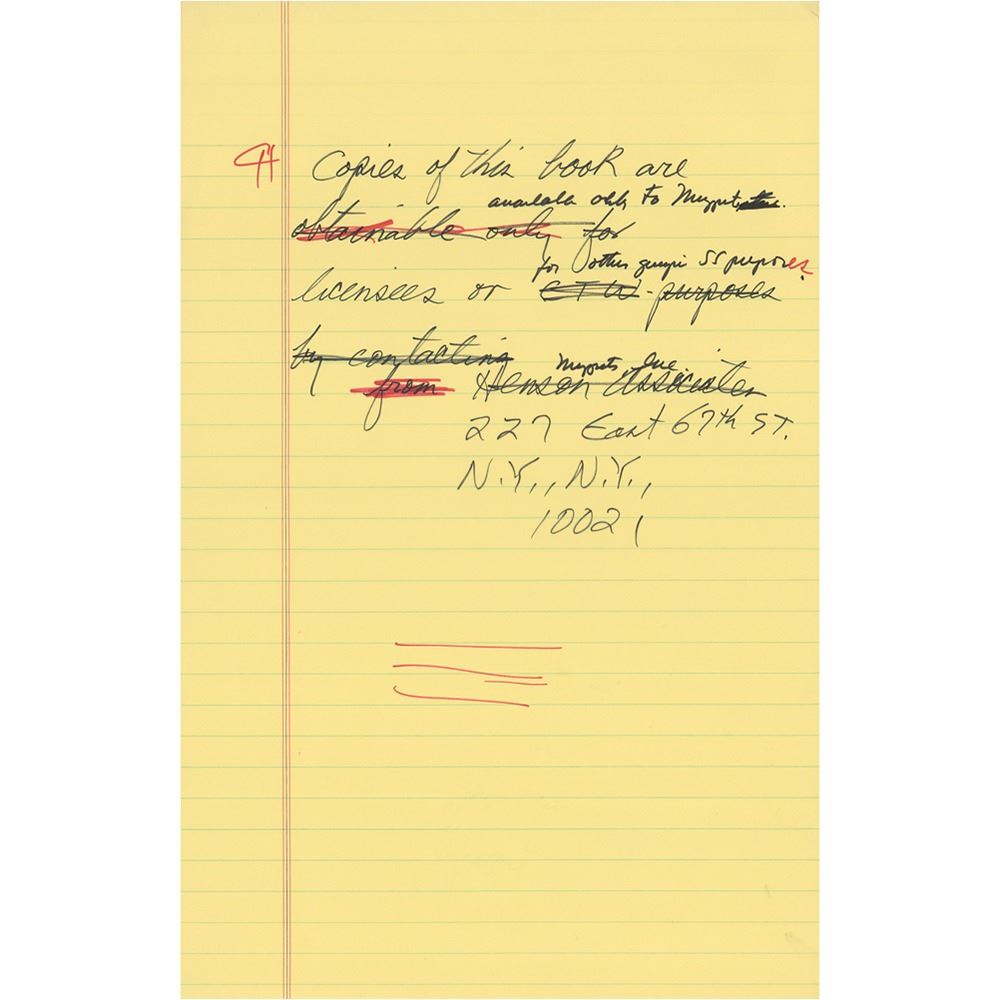 Copies of this book are
available only to Muppet
obtainable only for
for other SS purposes.
licensees or CTW - purposes
by contacting
Muppets, Inc.
from Henson Associates
227 East 67th ST.
N.Y., N.Y.,
10021